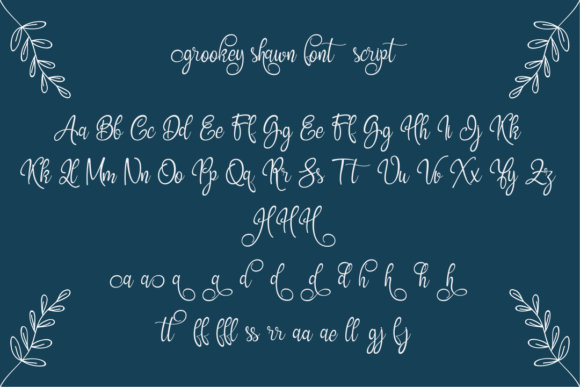 grookey shawn font script
Aa Bb Cc Dd Ee Ff Gg Ee Ff Gg Hh Ii Jj Kk
Kk Ll Mm Nn Oo Pp Qq Rr Ss Tt Vu Vv Xx Yy Zz
H H H
a a q q d d d d h h h h
tt ff fff ss rr aa ae ll gj fj